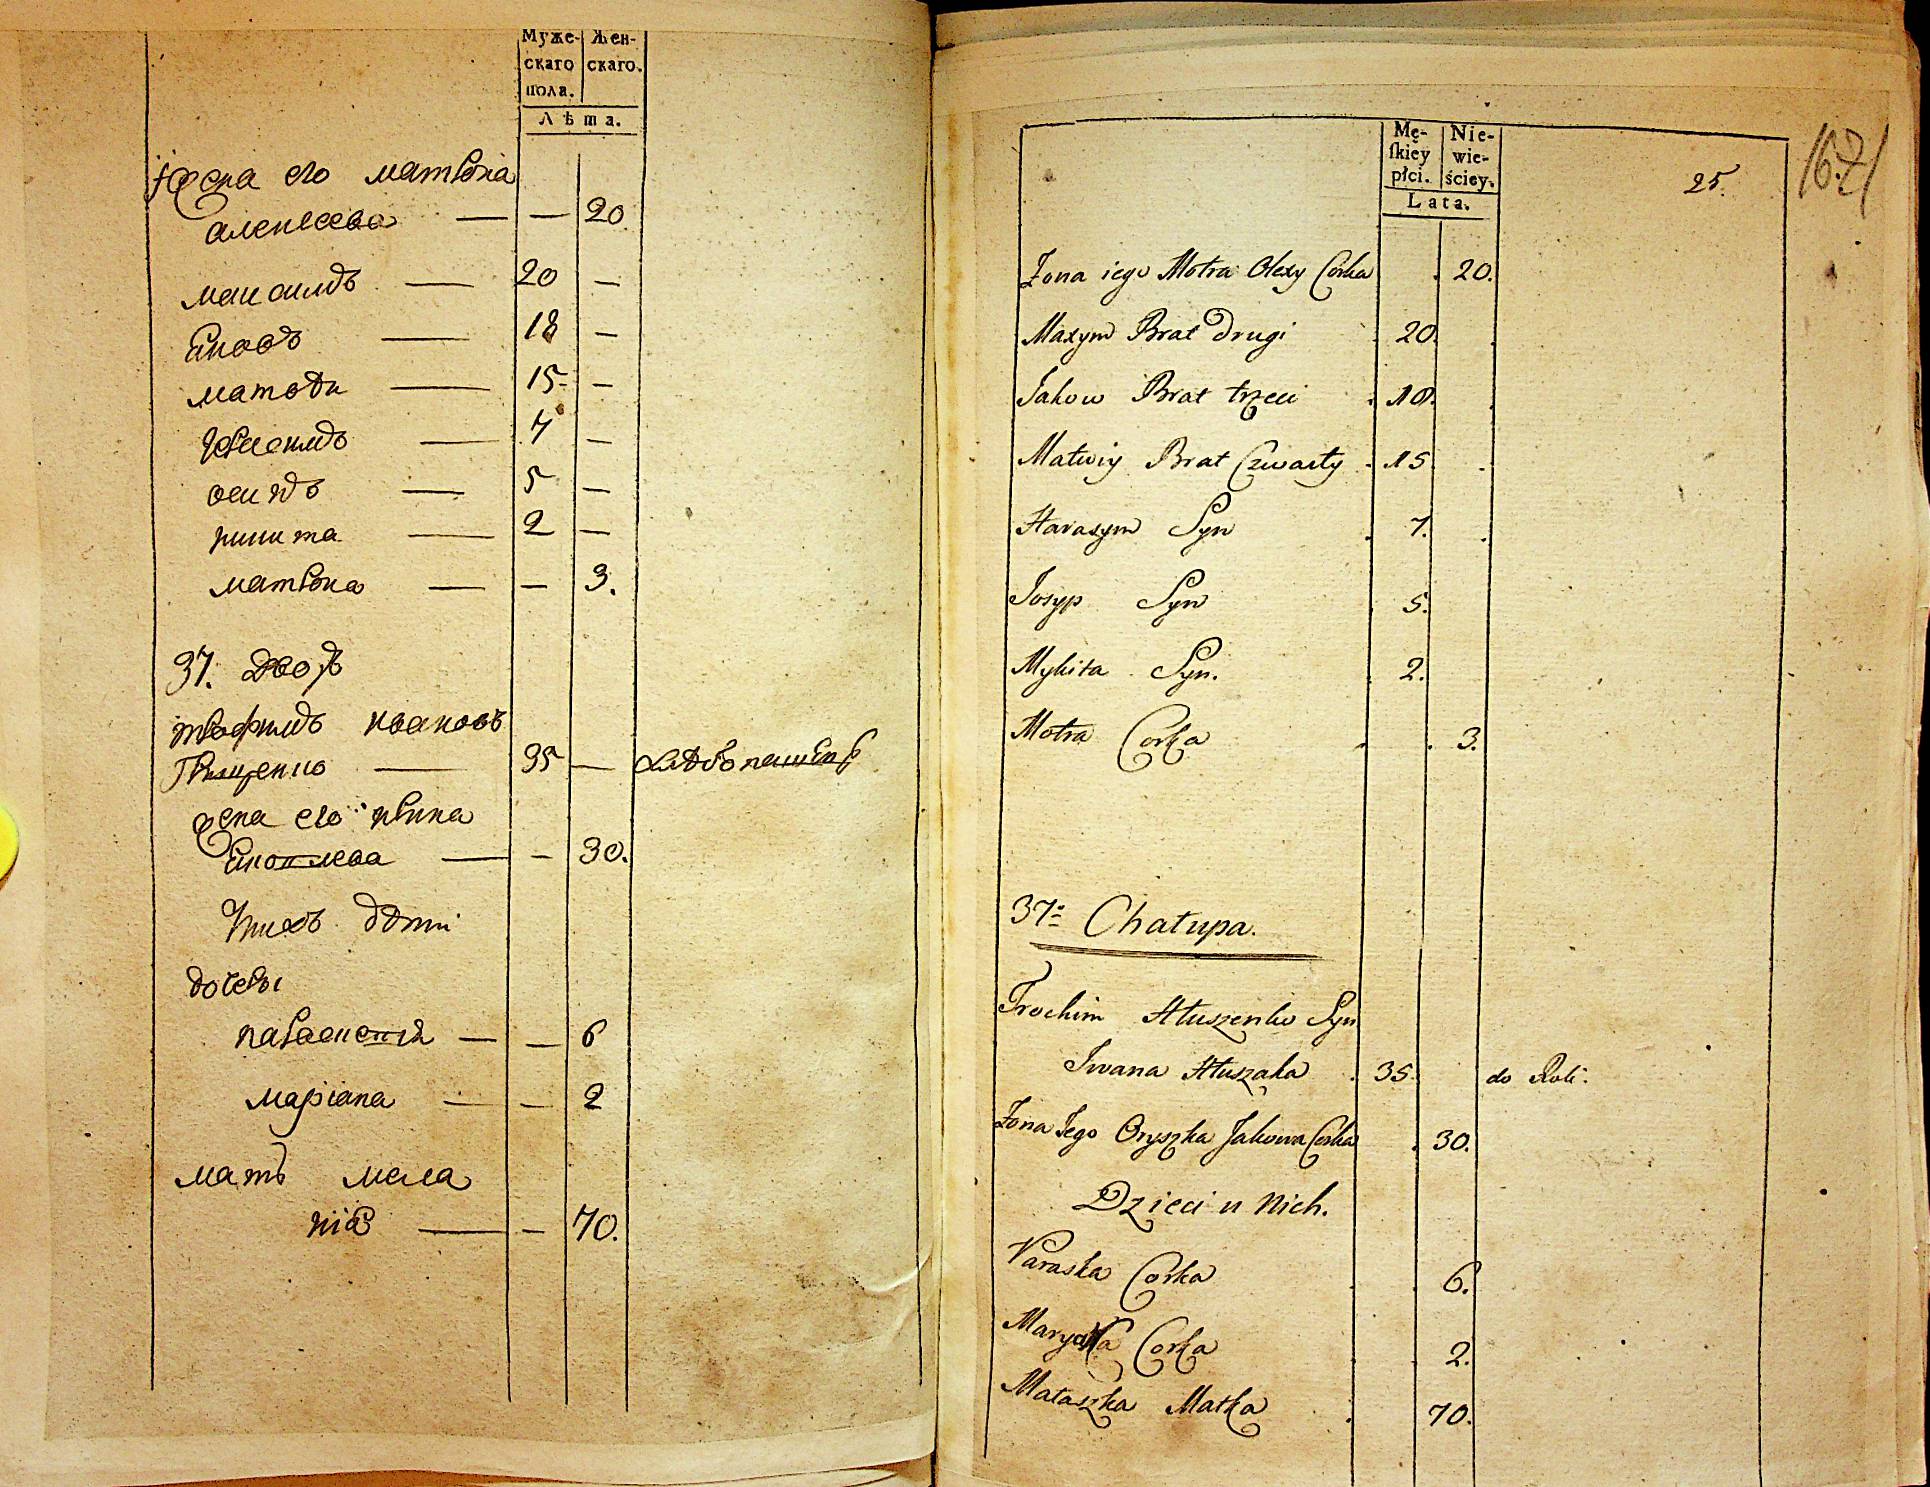 Муже-
скаго
пола.
Жен-
скаго.
Лѣта.
жена его матрона
алексеева — — 20
максимъ — 20 —
яковъ — 18 —
матвѣи — 15 —
герасимъ — 7 —
осипъ — 5 —
никита — 2 —
матрона — — 3.
37. дворъ
трофимъ ивановъ
35 — хлѣбопашецъ
жена его ирина
яковлева — — 30.
У нихъ дѣти
дочери
параскевия — — 6
мариана — — 2
мать мела
ния — — 70.
Mę-
skiey
płci.
Nie-
wie-
ściey.
Lata.
25.
Żona iego Motra Olexy Corka 20.
Maxym Brat drugi 20.
Jakow Brat trzeci 18.
Matwiy Brat Czwarty 15
Harasym Syn 7.
Josyp Syn 5.
Mykita Syn. 2.
Motra Corka 3.
37: Chałupa.
Trochim Hłuszenko Syn
Iwana Hłuszaka 35. do Roli.
Żona Jego Oryszka Jakowa Corka 30.
Dzieci u Nich.
Paraska Corka 6.
Maryna Corka 2.
Małaszka Matka 70.